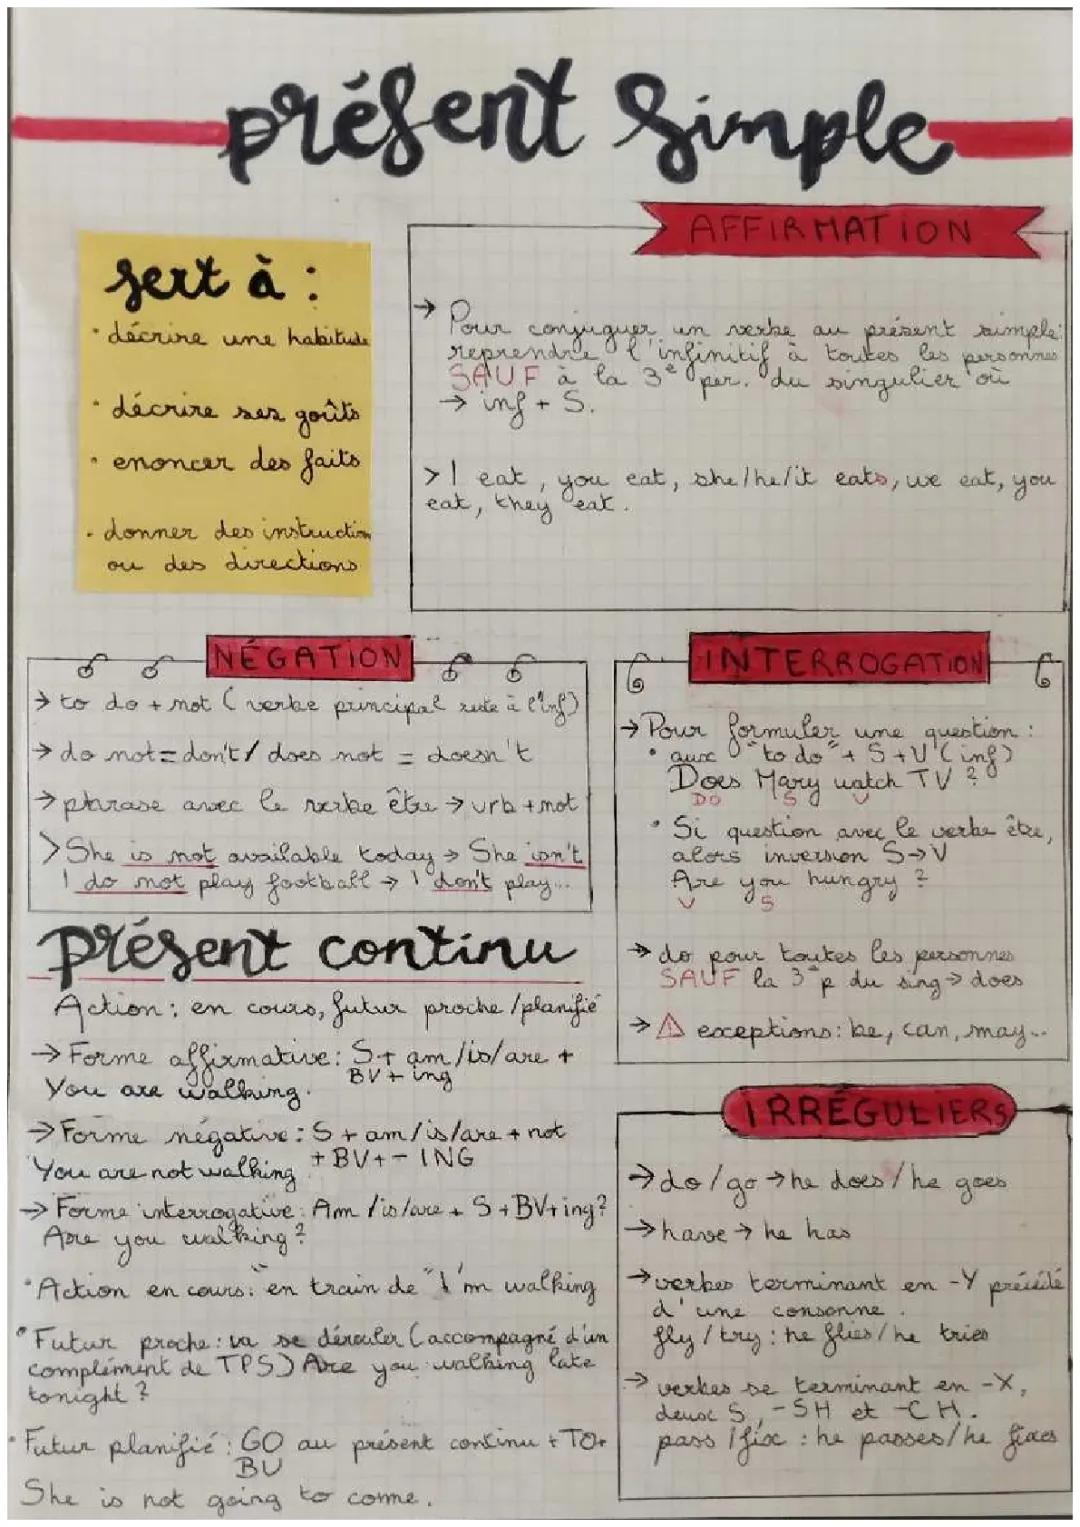 présent simple
sert à :
• décrire une habitude
• décrire ses goûts
• enoncer des faits
• donner des instruction
ou des directions
AFFIRMATION
→ Pour conjuguer un verbe au présent simple:
reprendre l'infinitif à toutes les personnes
SAUF à la 3e per. du singulier où
→ inf + S.
> I eat, you eat, she/he/it eats, we eat, you
eat, they eat.
NÉGATION
→ to do + not (verbe principal reste à l'inf)
→ do not = don't / does not = doesn't
→ phrase avec le verbe être → vrb + not
> She is not available today → She isn't
I do not play football → I don't play...
INTERROGATION
→ Pour formuler une question :
• aux "to do" + S + V (inf)
Does Mary watch TV ?
DO S V
• Si question avec le verbe être,
alors inversion S→V
Are you hungry ?
V S
→ do pour toutes les personnes
SAUF la 3e p du sing → does
→ ⚠ exceptions: be, can, may...
présent continu
Action : en cours, futur proche / planifié
→ Forme affirmative: S + am/is/are +
BV + ing
You are walking.
→ Forme négative : S + am/is/are + not
+ BV + - ING
You are not walking
→ Forme interrogative: Am/is/are + S + BV + ing?
Are you walking ?
• Action en cours: "en train de" I'm walking
• Futur proche : va se dérouler (accompagné d'un
complément de TPS) Are you walking late
tonight ?
• Futur planifié : GO au présent continu + TO +
BV
She is not going to come.
IRRÉGULIERS
→ do/go → he does / he goes
→ have → he has
→ verbes terminant en -Y précédé
d'une consonne.
fly / try : he flies / he tries
→ verbes se terminant en -X,
deux S, -SH et -CH.
pass / fix : he passes / he fixes